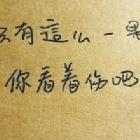 有這么一
你看着伤吧